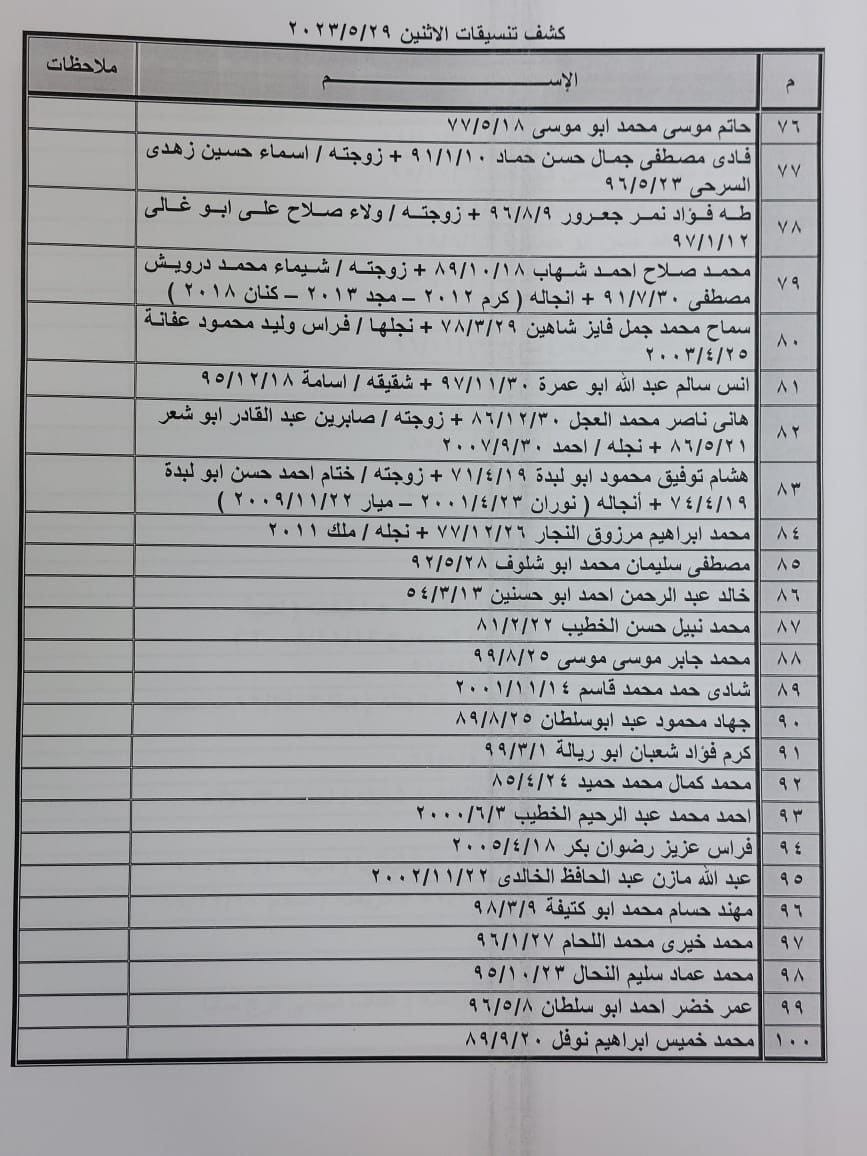 كشف تنسيقات الاثنين ٢٠٢٣/٥/٢٩
م الإســـم ملاحظات
٧٦ حاتم موسى محمد ابو موسى ٧٧/٥/١٨
٧٧ فادى مصطفى جمال حسن حماد ٩١/١/١٠ + زوجته / اسماء حسين زهدى
السرحى ٩٦/٥/٢٣
٧٨ طه فؤاد نمر جعرور ٩٦/٨/٩ + زوجته / ولاء صلاح على ابو غالى
٩٧/١/١٢
٧٩ محمد صلاح احمد شهاب ٨٩/١٠/١٨ + زوجته / شيماء محمد درويش
مصطفى ٩١/٧/٣٠ + انجاله ( كرم ٢٠١٢ – مجد ٢٠١٣ – كنان ٢٠١٨ )
٨٠ سماح محمد جمل فايز شاهين ٧٨/٣/٢٩ + نجلها / فراس وليد محمود عفانة
٢٠٠٣/٤/٢٥
٨١ انس سالم عبد الله ابو عمرة ٩٧/١١/٣٠ + شقيقه / اسامة ٩٥/١٢/١٨
٨٢ هانى ناصر محمد العجل ٨٦/١٢/٣٠ + زوجته / صابرين عبد القادر ابو شعر
٨٦/٥/٢١ + نجله / احمد ٢٠٠٧/٩/٣٠
٨٣ هشام توفيق محمود ابو لبدة ٧١/٤/١٩ + زوجته / ختام احمد حسن ابو لبدة
٧٤/٤/١٩ + أنجاله ( نوران ٢٠٠١/٤/٢٣ – ميار ٢٠٠٩/١١/٢٢ )
٨٤ محمد ابراهيم مرزوق النجار ٧٧/١٢/٢٦ + نجله / ملك ٢٠١١
٨٥ مصطفى سليمان محمد ابو شلوف ٩٢/٥/٢٨
٨٦ خالد عبد الرحمن احمد ابو حسنين ٥٤/٣/١٣
٨٧ محمد نبيل حسن الخطيب ٨١/٢/٢٢
٨٨ محمد جابر موسى موسى ٩٩/٨/٢٥
٨٩ شادى حمد محمد قاسم ٢٠٠١/١١/١٤
٩٠ جهاد محمود عبد ابوسلطان ٨٩/٨/٢٥
٩١ كرم فؤاد شعبان ابو ريالة ٩٩/٣/١
٩٢ محمد كمال محمد حميد ٨٥/٤/٢٤
٩٣ احمد محمد عبد الرحيم الخطيب ٢٠٠٠/٦/٣
٩٤ فراس عزيز رضوان بكر ٢٠٠٥/٤/١٨
٩٥ عبد الله مازن عبد الحافظ الخالدى ٢٠٠٢/١١/٢٢
٩٦ مهند حسام محمد ابو كتيفة ٩٨/٣/٩
٩٧ محمد خيرى محمد اللحام ٩٦/١/٢٧
٩٨ محمد عماد سليم النحال ٩٥/١٠/٢٣
٩٩ عمر خضر احمد ابو سلطان ٩٦/٥/٨
١٠٠ محمد خميس ابراهيم نوفل ٨٩/٩/٢٠